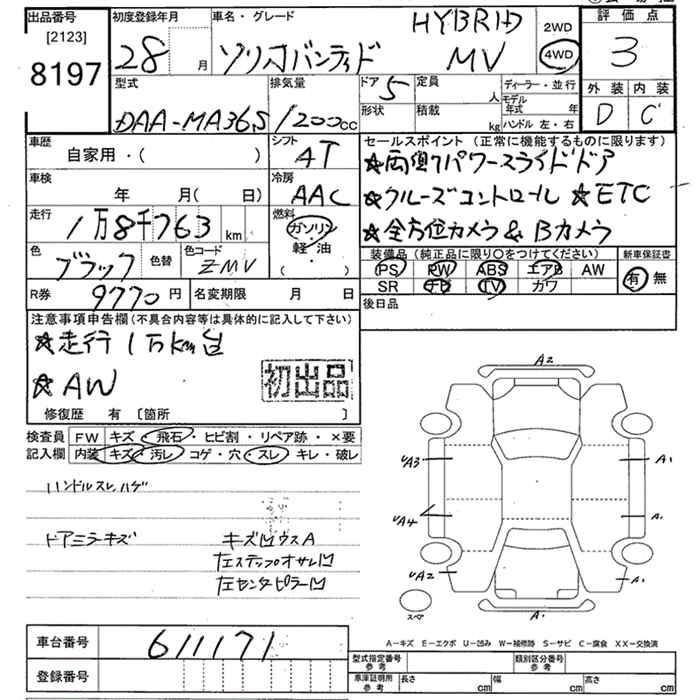 出品番号 初度登録年月 車名・グレード HYBRID 2WD 評価点
[2123] 28 月 ソリオバンディド MV 4WD 3
8197 型式 排気量 ドア 5 定員 人 ディーラー・並行 外装 内装
DAA-MA36S 1200cc 形状 積載 kg モデル年式 年 ハンドル 左・右 D C
車歴 シフト セールスポイント (正常に機能するものに限ります)
自家用・( ) AT ★両側パワースライドドア
車検 冷房 ★クルーズコントロール ★ETC
年 月( 日) AAC ★全方位カメラ & Bカメラ
走行 1万8千763 km 燃料 ガソリン 軽・油 ( ・ )
装備品 (純正品に限り○をつけてください) 新車保証書
色 ブラック 色替 色コード ZMV PS PW ABS エアB AW 有 無
SR TV カワ
R券 9770 円 名変期限 月 日 後日品
注意事項申告欄 (不具合内容等は具体的に記入して下さい)
★走行 1万km台
★AW 初出品
修復歴 有 〔箇所 〕
検査員 FW キズ・飛石・ヒビ割・リペア跡・×要
記入欄 内装 キズ・汚レ・コゲ・穴・スレ・キレ・破レ
ハンドルスレ、ハゲ
ドアミラーキズ キズ凹ウスA
左ステップオサレ凹
左センタピラー凹
A2
UA3 A1
UA4 A1
UA2 A1
スペア A1
A-キズ E-エクボ U-凹み W-補修跡 S-サビ C-腐食 XX-交換済
車台番号 611171
登録番号
型式指定番号 参考 類別区分番号 参考
車庫証明用 参考 長さ cm 幅 cm 高さ cm